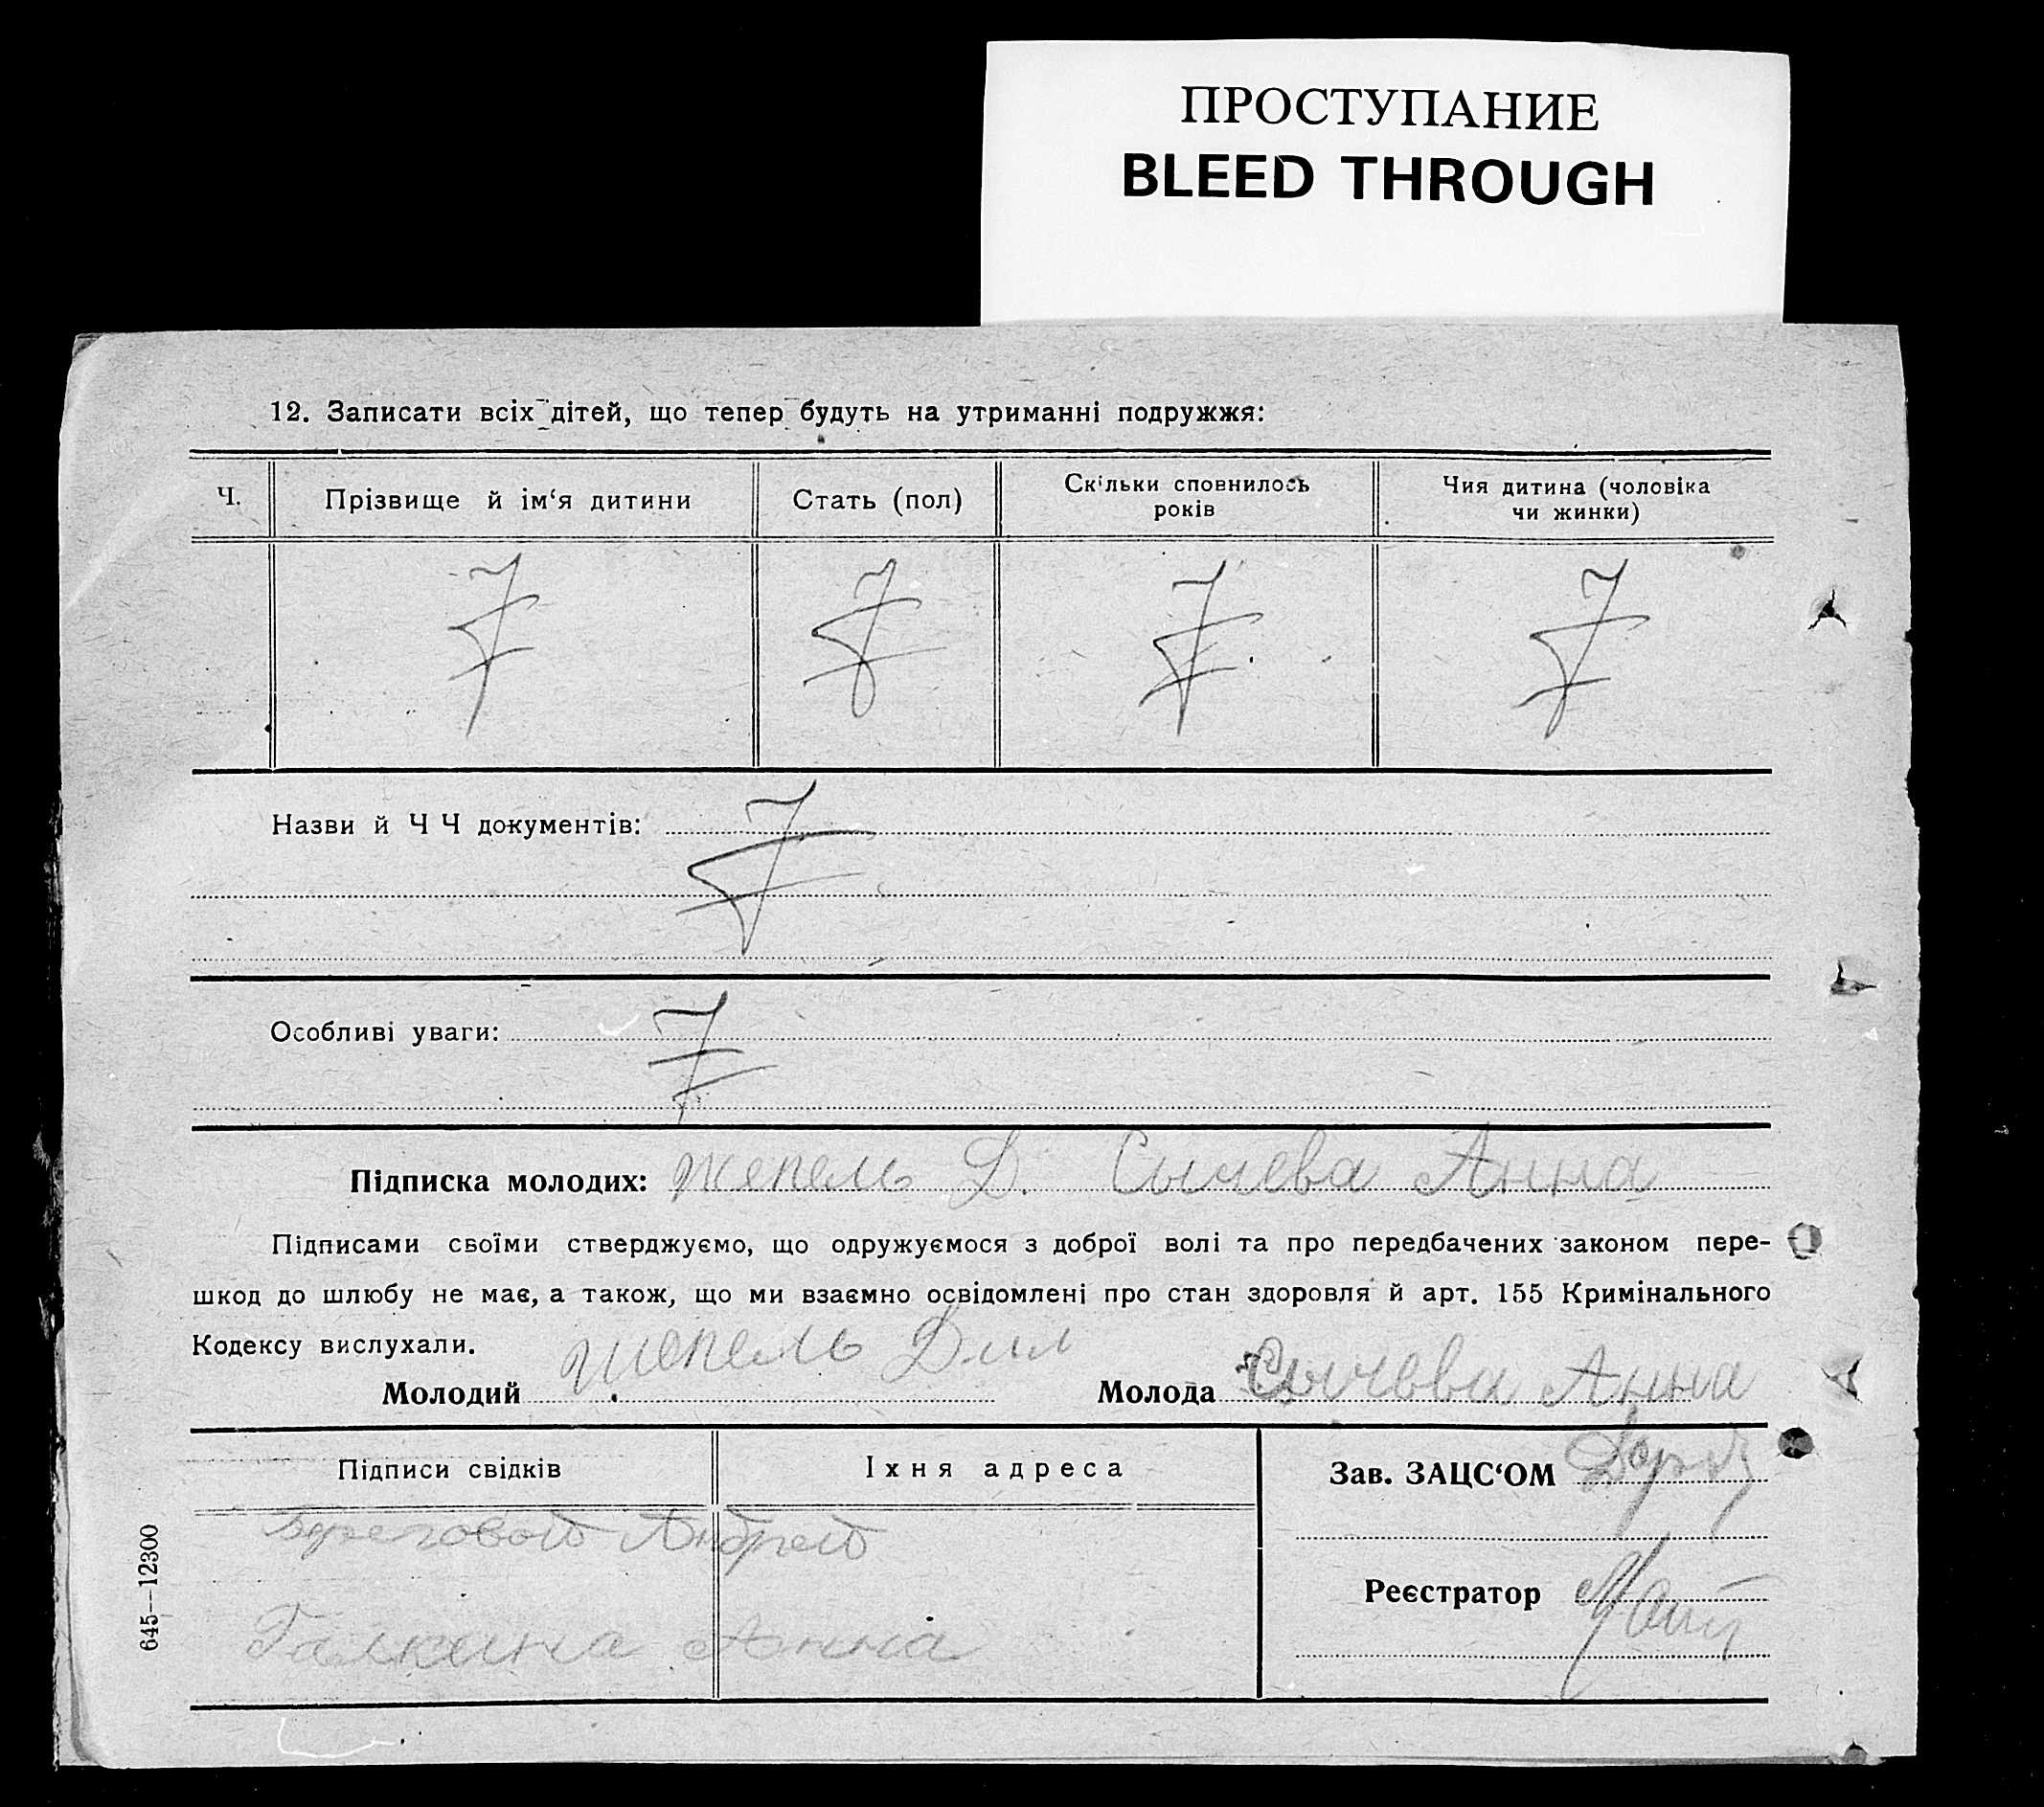 ПРОСТУПАНИЕ
BLEED THROUGH
12. Записати всіх дітей, що тепер будуть на утриманні подружжя:
Ч.
Прізвище й ім‘я дитини
Стать (пол)
Скільки сповнилось
років
Чия дитина (чоловіка
чи жинки)
Назви й Ч Ч документів:
Особливі уваги:
Підписка молодих: Жепель Д. Сычева Анна
Підписами своїми стверджуємо, що одружуємося з доброї волі та про передбачених законом пере-
шкод до шлюбу не має, а також, що ми взаємно освідомлені про стан здоровля й арт. 155 Кримінального
Кодексу вислухали.
Молодий Жепель
Молода Сычева Анна
Підписи свідків
Їхня адреса
Зав. ЗАЦС‘ОМ
Береговой Андрей
Реєстратор
Галкина Анна
645—12300